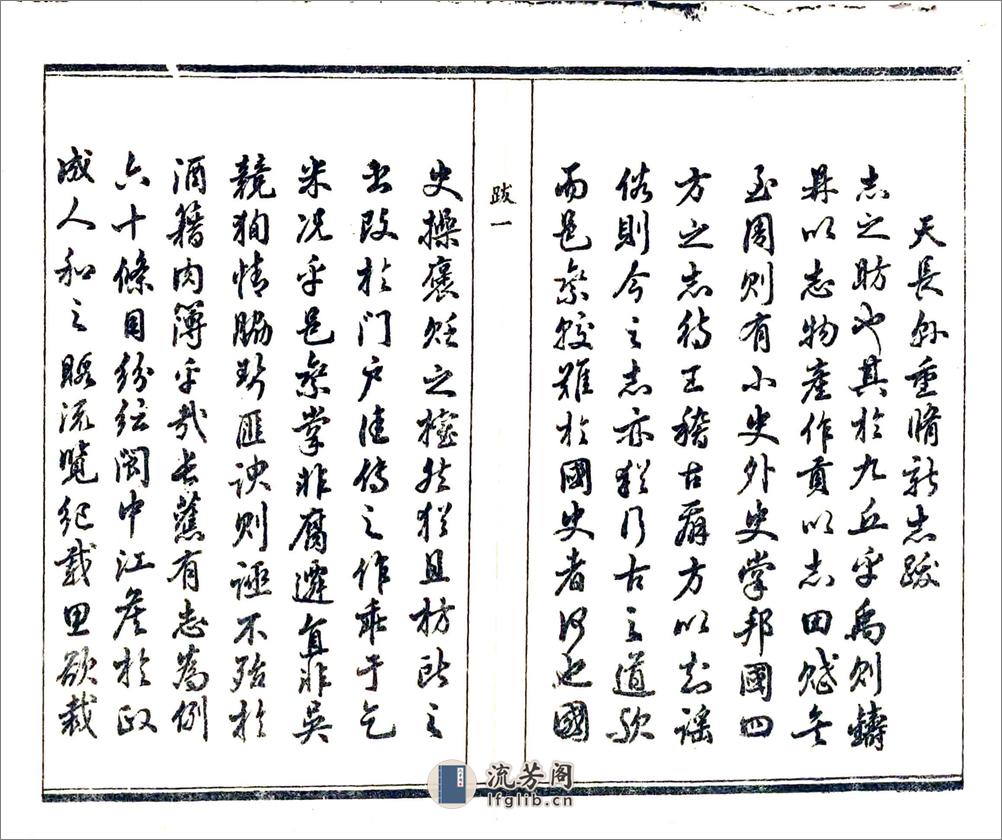 天長縣重脩新志跋
志之昉也其於九丘乎禹則鑄
鼎以志物產作貢以志田賦矣
至周則有小史外史掌邦國四
方之志待王稽古省方以知謠
俗則今之志亦猶行古之道歟
而邑乘較難於國史者何也國
跋一
史操褒貶之權然猶且枋頭之
書改於門戶佳傳之作乖于乞
米况乎邑乘掌非腐遷直非吳
競狥情脇斷匪諛則誣不殆於
酒籍肉簿乎哉長舊有志為例
六十條目紛紜閩中江侯於政
成人和之暇流覽紀載思欲裁
流芳阁
lfglib.cn